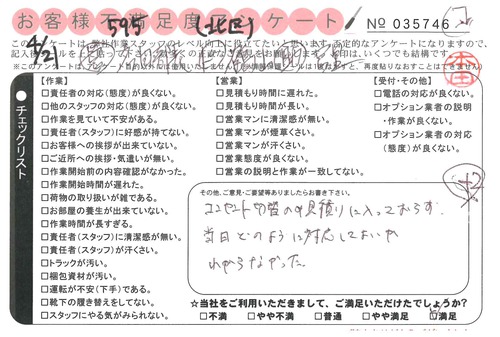 お客様不満足度アンケート!
595 (北区)
№ 035746
このアンケートは、弊社作業スタッフのレベル向上に役立てたいと思います。否定的なアンケートになりますので、
4/21
チェックリスト
【作業】
□責任者の対応(態度)が良くない。
□他のスタッフの対応(態度)が良くない。
□作業を見ていて不安がある。
□責任者(スタッフ)に好感が持てない。
□お客様への挨拶が出来ていない。
□ご近所への挨拶・気遣いが無い。
□作業開始前の内容確認がなかった。
□作業開始時間が遅れた。
□荷物の取り扱いが雑である。
□お部屋の養生が出来ていない。
□作業時間が長すぎる。
□責任者(スタッフ)に清潔感が無い。
□責任者(スタッフ)が汗くさい。
□トラックが汚い。
□梱包資材が汚い。
□運転が不安(下手)である。
□靴下の履き替えをしてない。
□スタッフにやる気がみられない。
【営業】
□見積もり時間に遅れた。
□見積もり時間が長い。
□営業マンに清潔感が無い。
□営業マンが煙草くさい。
□営業マンが汗くさい。
□営業態度が良くない。
□営業の説明と作業が一致してない。
【受付・その他】
□電話の対応が良くない。
□オプション業者の説明
・作業が良くない。
□オプション業者の対応
(態度)が良くない。
+2
その他、ご意見・ご要望等ありましたらお書き下さい。
コンセント切替の件見積りに入っておらず、
当日どのように対応してよいか
わからなかった
☆当社をご利用いただきまして、ご満足いただけたでしょうか?
□不満 □やや不満 □普通 □やや満足 □満足